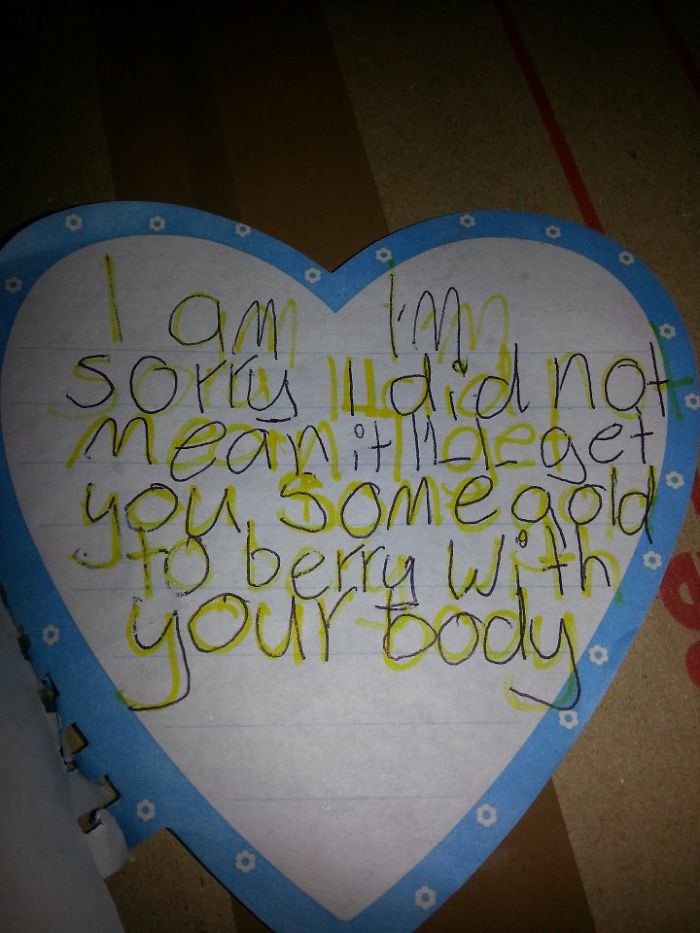 I am I'm
sorry I did not
mean it I'l get
you some gold
to berry with
your body